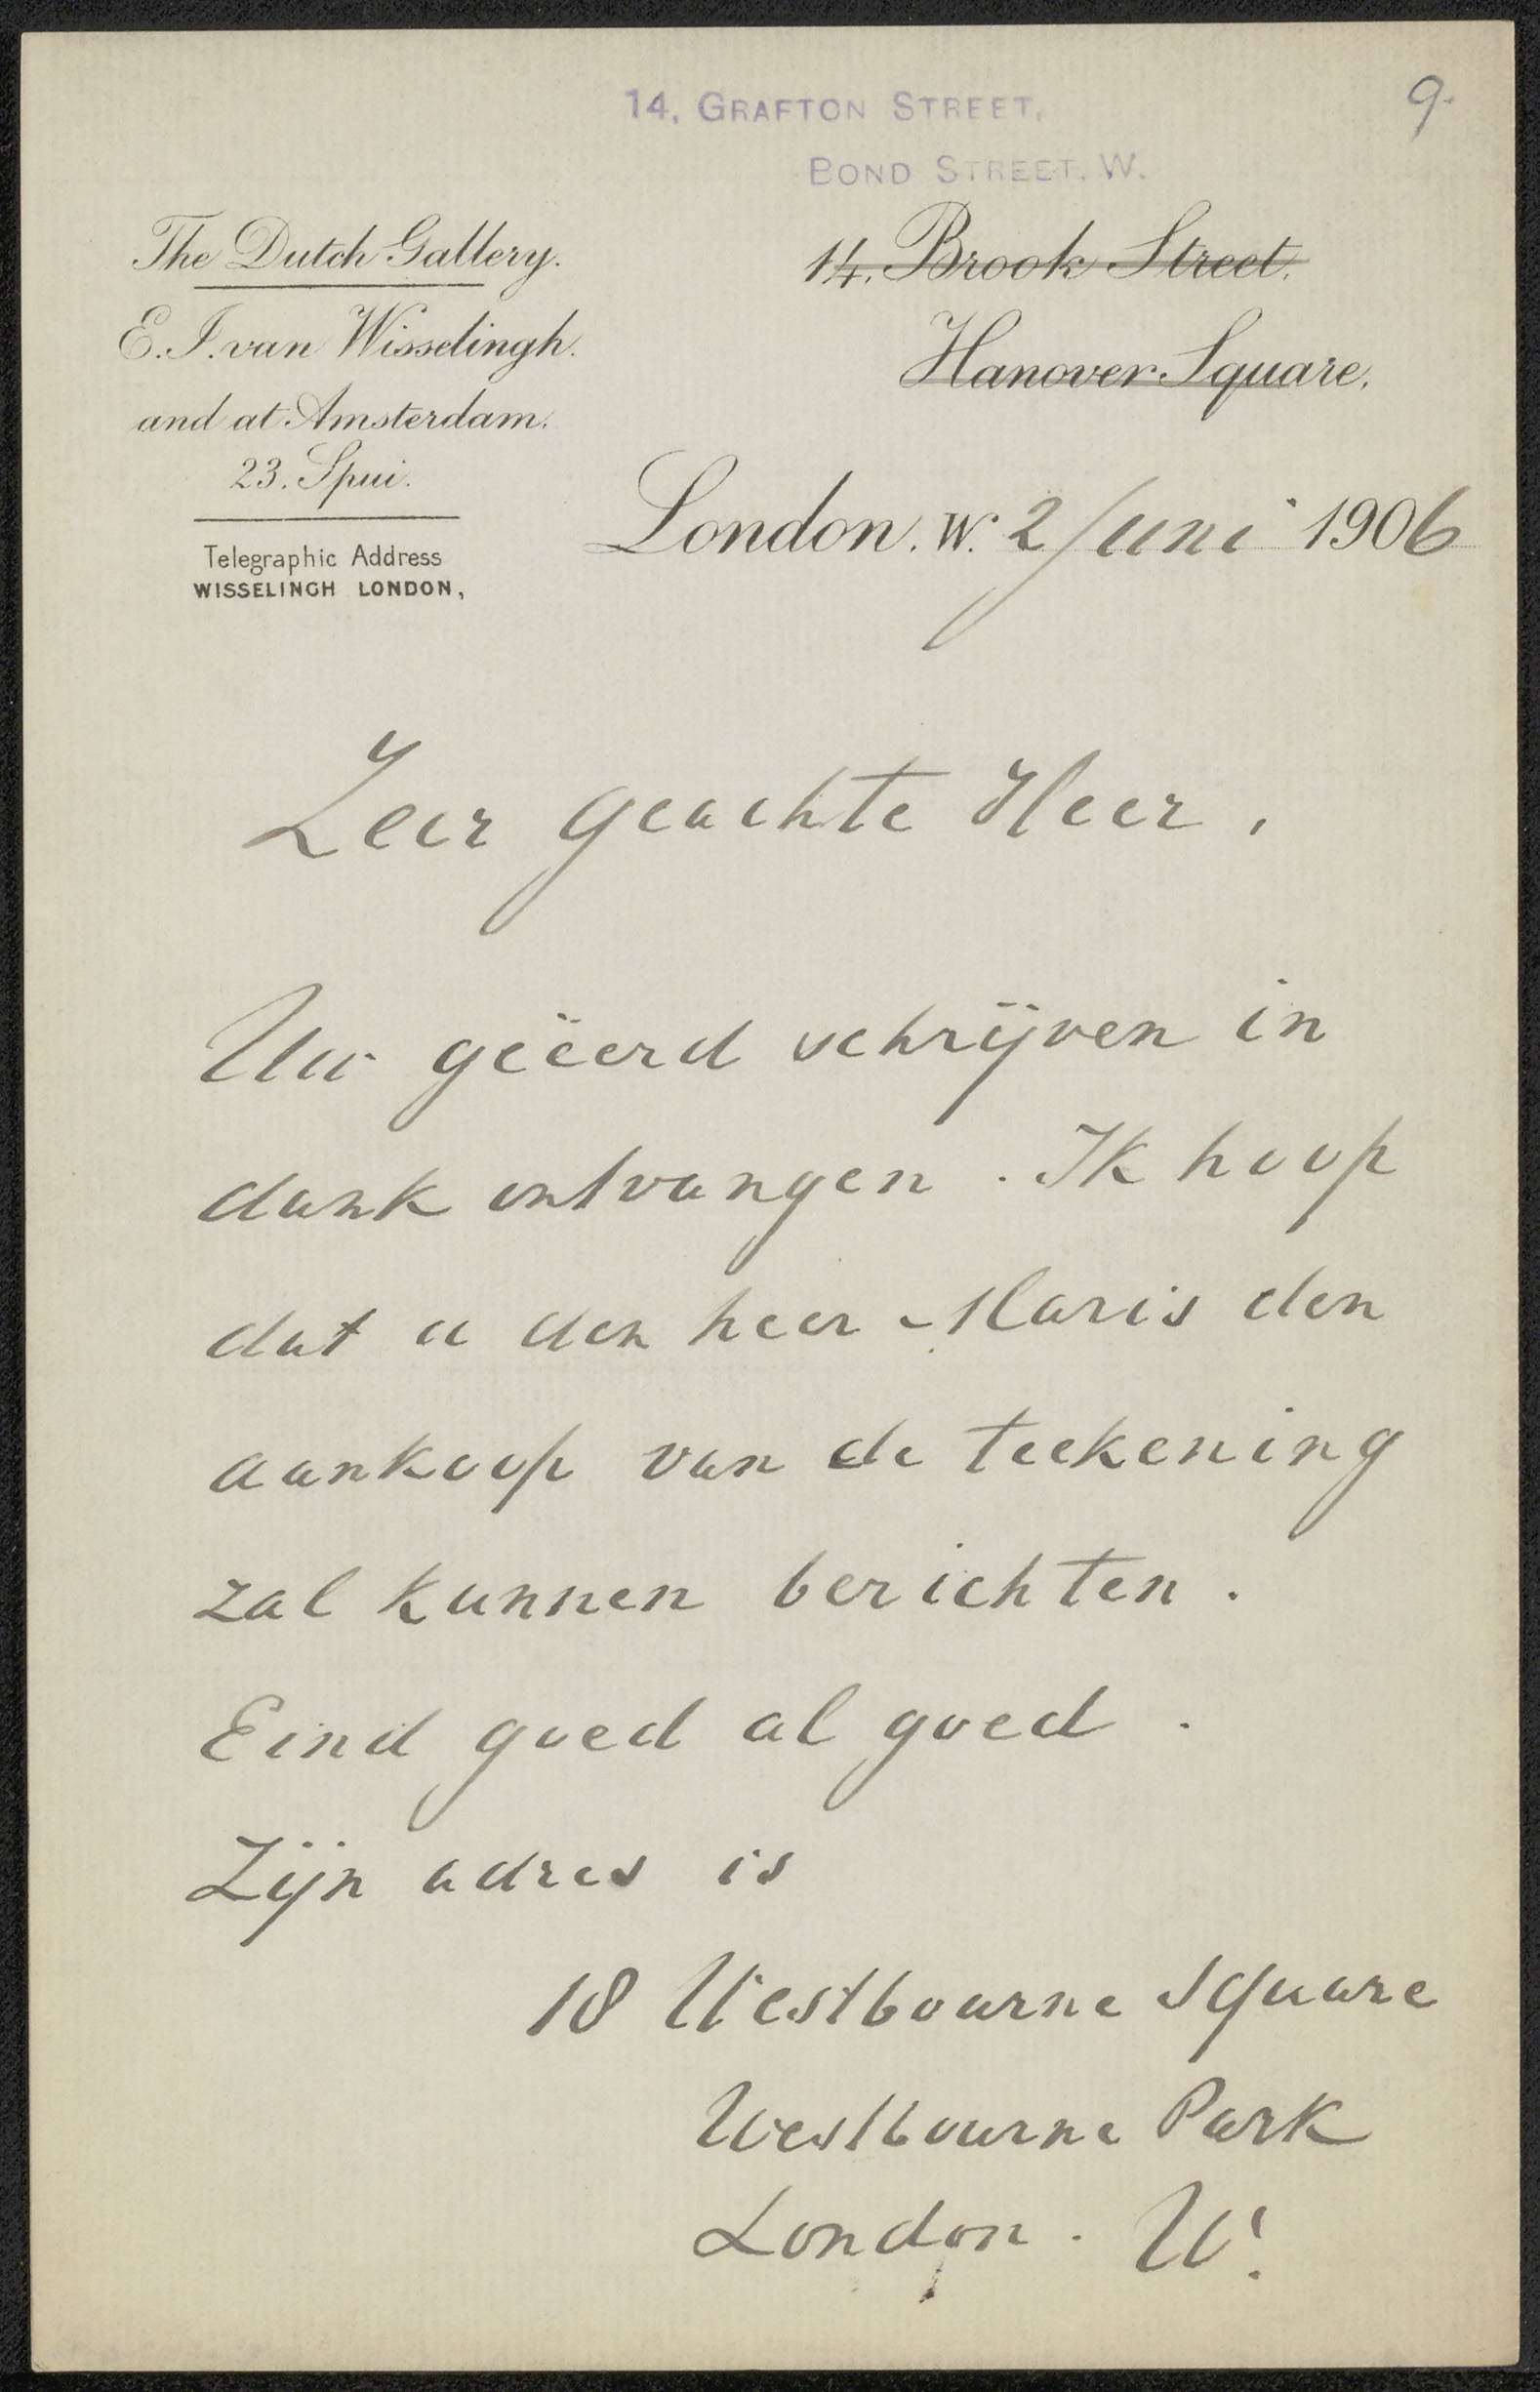 14, GRAFTON STREET,
BOND STREET, W.
9.
The Dutch Gallery.
E. J. van Wisselingh.
and at Amsterdam.
23. Spui.
Telegraphic Address
WISSELINGH LONDON,
14. Brook Street.
Hanover Square.
London. W. 2 Juni 1906
Zeer geachte Heer,
Uw geëerd schrijven in
dank ontvangen. Ik hoop
dat u den heer Maris den
aankoop van de teekening
zal kunnen berichten.
Eind goed al goed.
Zijn adres is
18 Westbourne Square
Westbourne Park
London. W.